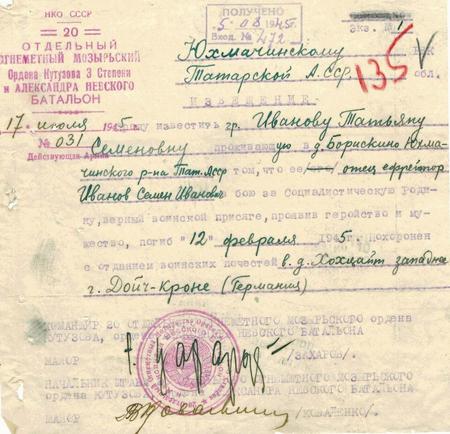 НКО СССР
20
ОТДЕЛЬНЫЙ
ОГНЕМЕТНЫЙ МОЗЫРЬСКИЙ
Ордена Кутузова 3 Степени
и АЛЕКСАНДРА НЕВСКОГО
БАТАЛЬОН
17 июля 1945
№ 031
Действующая Армия
ПОЛУЧЕНО
5 08 1945г.
Вход. № 472
Экз. № 1
Юхмачинскому
Татарской А.ССР. обл.
135
ИЗВЕЩЕНИЕ
известить гр. Иванову Татьяну
Семеновну проживающую в д. Борискино Юхма-
чинского р-на Тат.Асср том, что ее отец ефрейтор
Иванов Семен Иванович бою за Социалистическую Роди-
ну, верный воинской присяге, проявив геройство и му-
жество, погиб "12" февраля 1945 Похоронен
с отданием воинских почестей в д. Хохцайт западнее
г. Дойч-Кроне (Германия)
КОМАНДИР 20 ОГНЕМЕТНОГО МОЗЫРЬСКОГО ордена
КУТУЗОВА, НЕВСКОГО БАТАЛЬОНА
МАЙОР /ЗАХАРОВ/
НАЧАЛЬНИК ШТАБА ОГНЕМЕТНОГО МОЗЫРЬСКОГО
ордена КУТУЗОВА НЕВСКОГО БАТАЛЬОНА
МАЙОР /КОВАЛЕНКО/